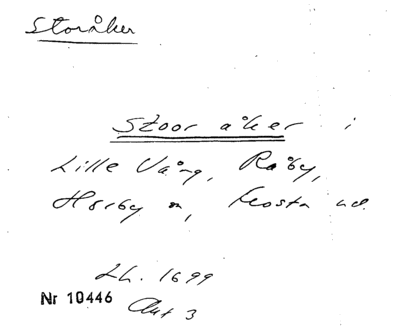 Storåker
Stoor åker i
Lille Våång, Råby,
Hörby sn, Frosta hd.
Lh. 1699
Nr 10446 Akt 3